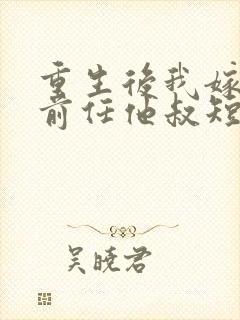 重生後我嫁
前任他叔短
吴曉君